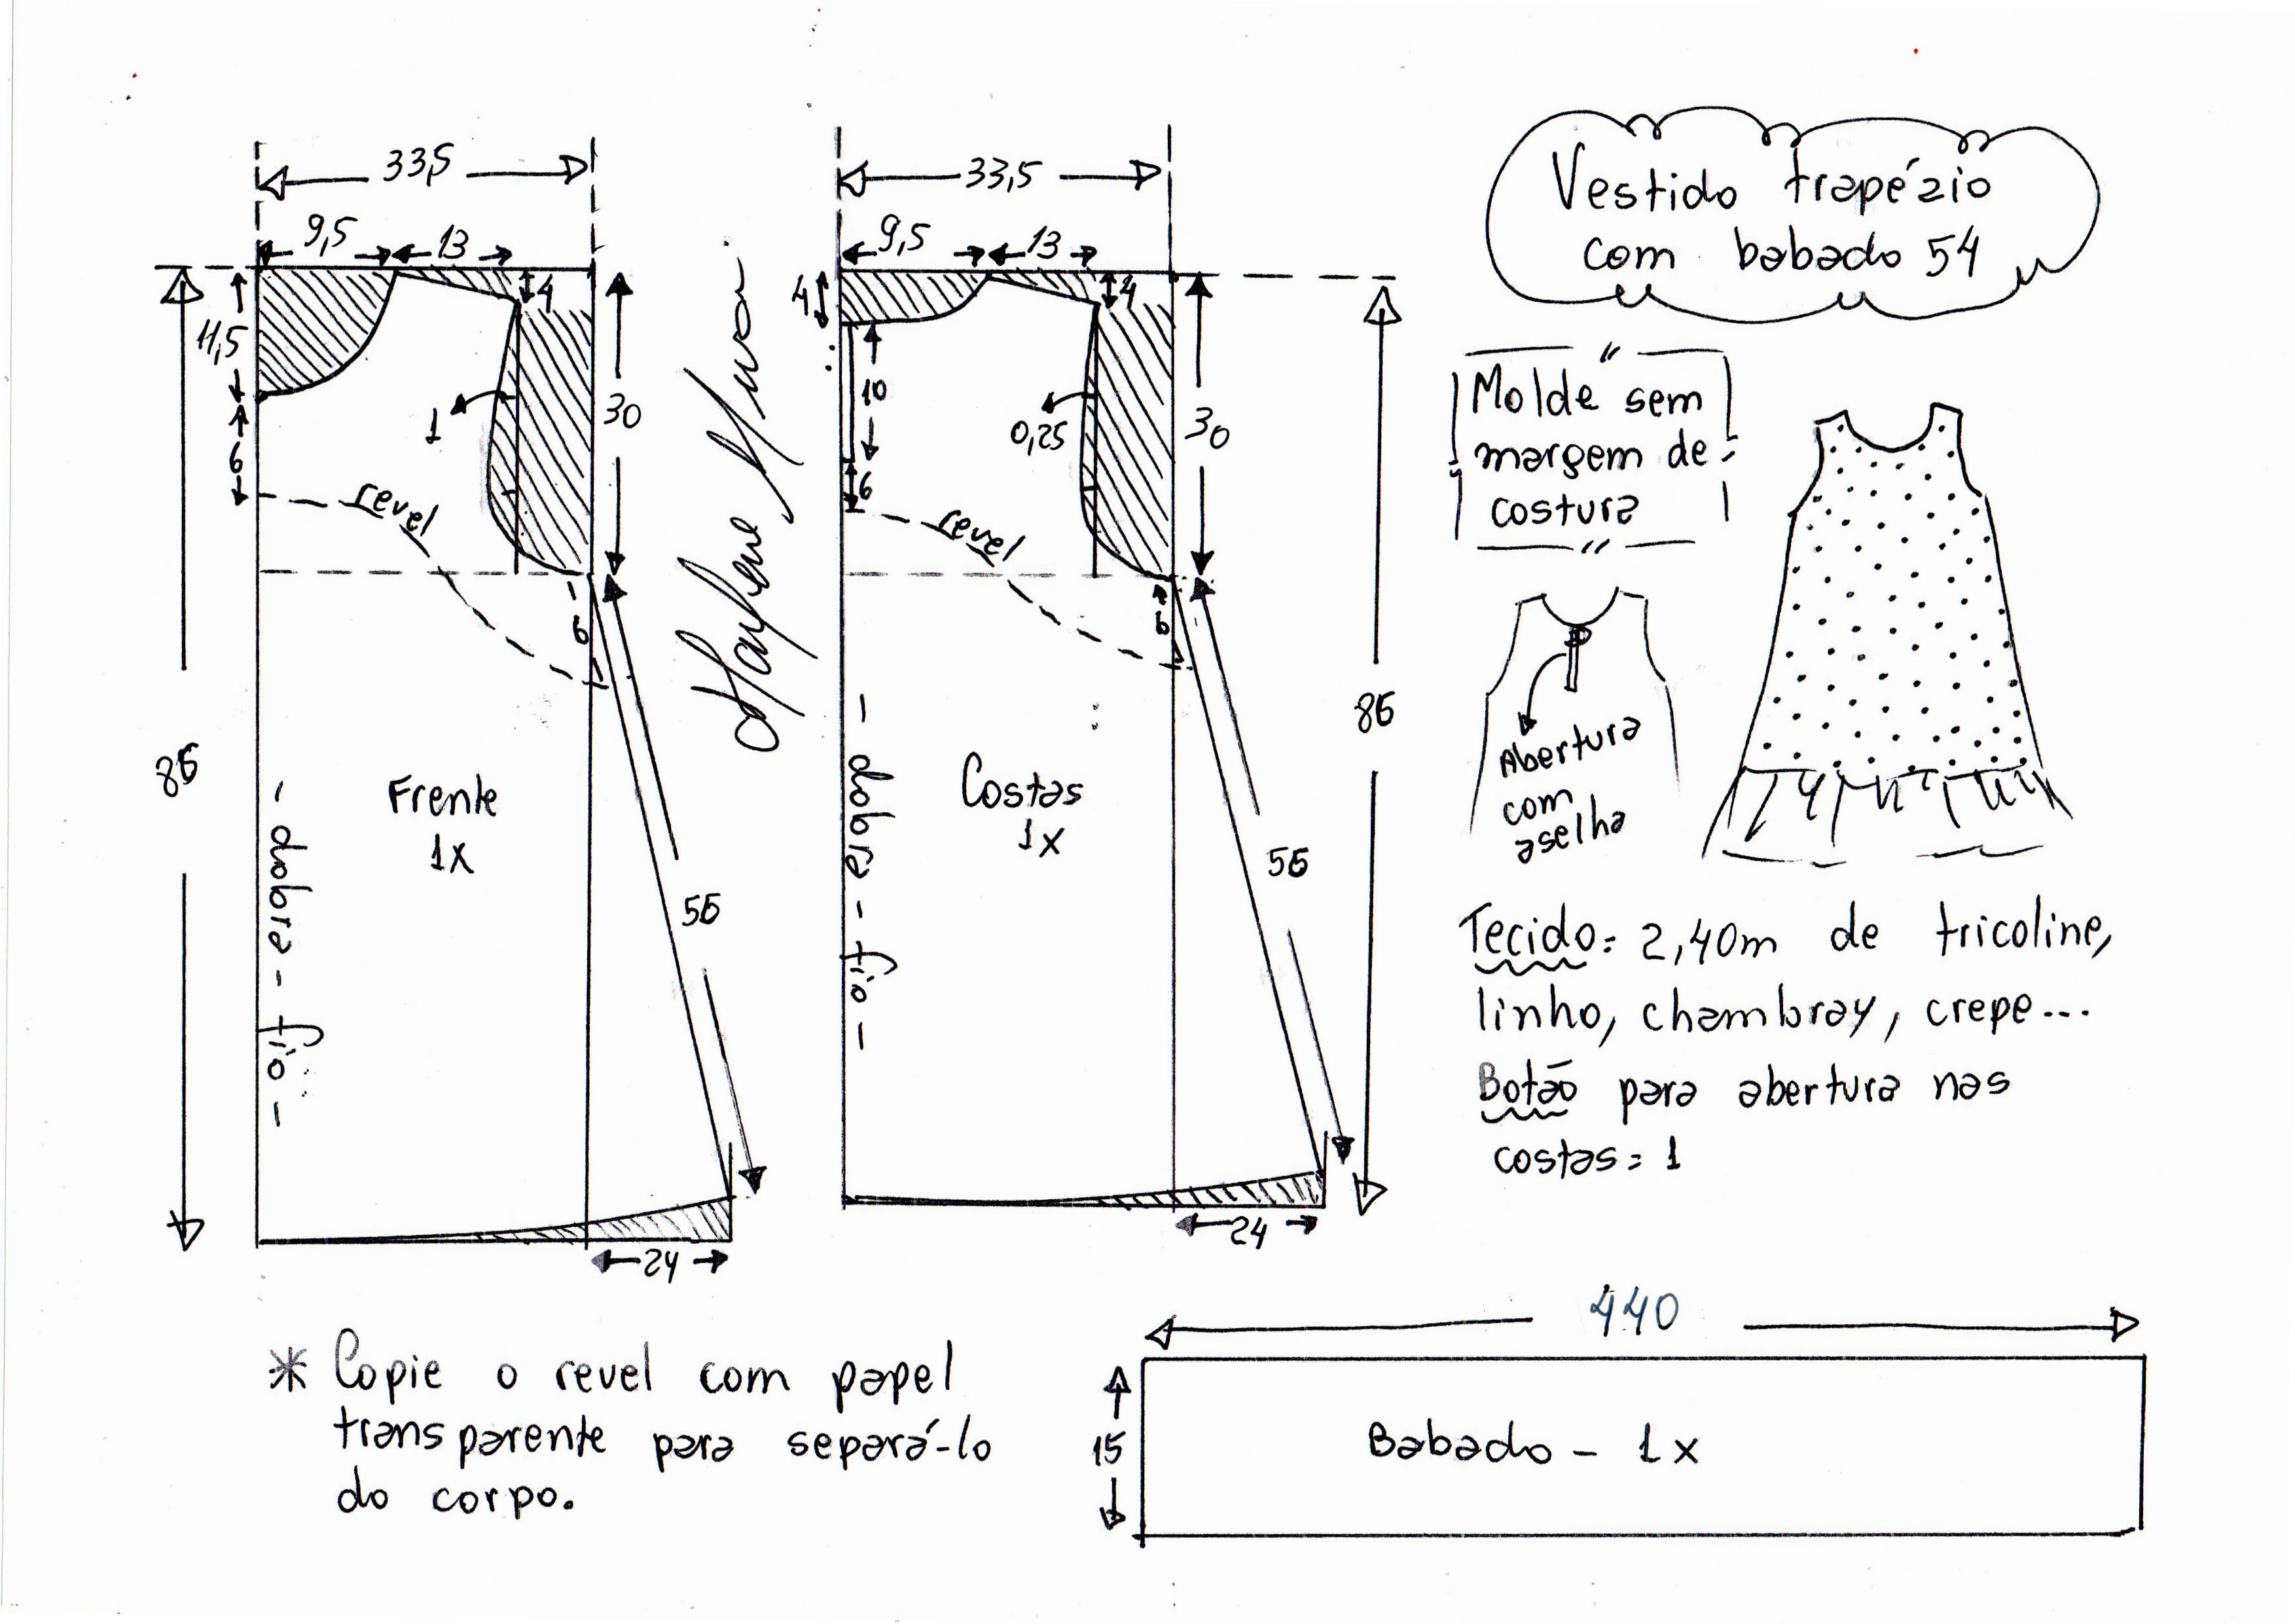 33,5
9,5
13
4
11,5
6
1
30
revel
6
86
- dobra - fio -
Frente
1x
56
24
Marlene Mukai
33,5
9,5
13
4
4
10
6
0,25
30
revel
6
86
- dobra - fio -
Costas
1x
56
24
Vestido trapézio
com babado 54
Molde sem
margem de
costura
Abertura
com
aselha
Tecido = 2,40m de tricoline,
linho, chambray, crepe...
Botão para abertura nas
costas = 1
* Copie o revel com papel
transparente para separá-lo
do corpo.
440
15
Babado - 1x